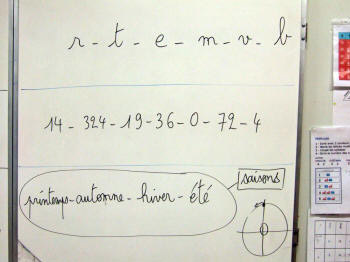 r - t - e - m - v - b
14 - 324 - 19 - 36 - 0 - 72 - 4
saisons
printemps - automne - hiver - été